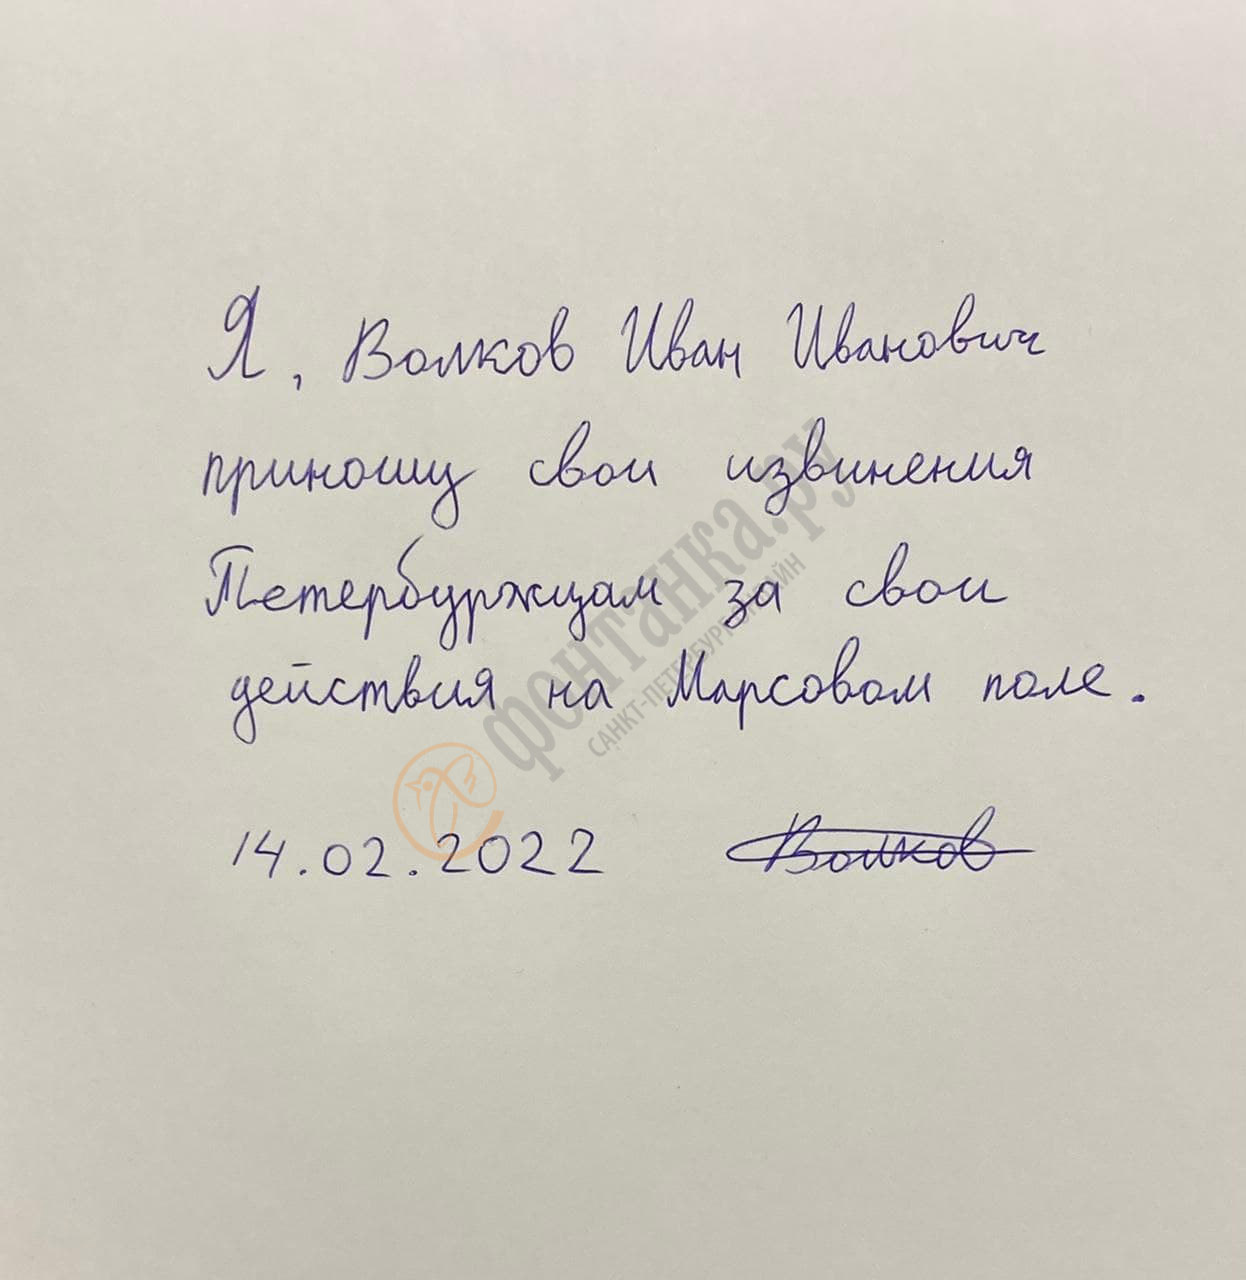 Я, Волков Иван Иванович
приношу свои извинения
Петербуржцам за свои
действия на Марсовом поле.
14.02.2022 Волков
фонтанка.ру
САНКТ-ПЕТЕРБУРГ ОНЛАЙН